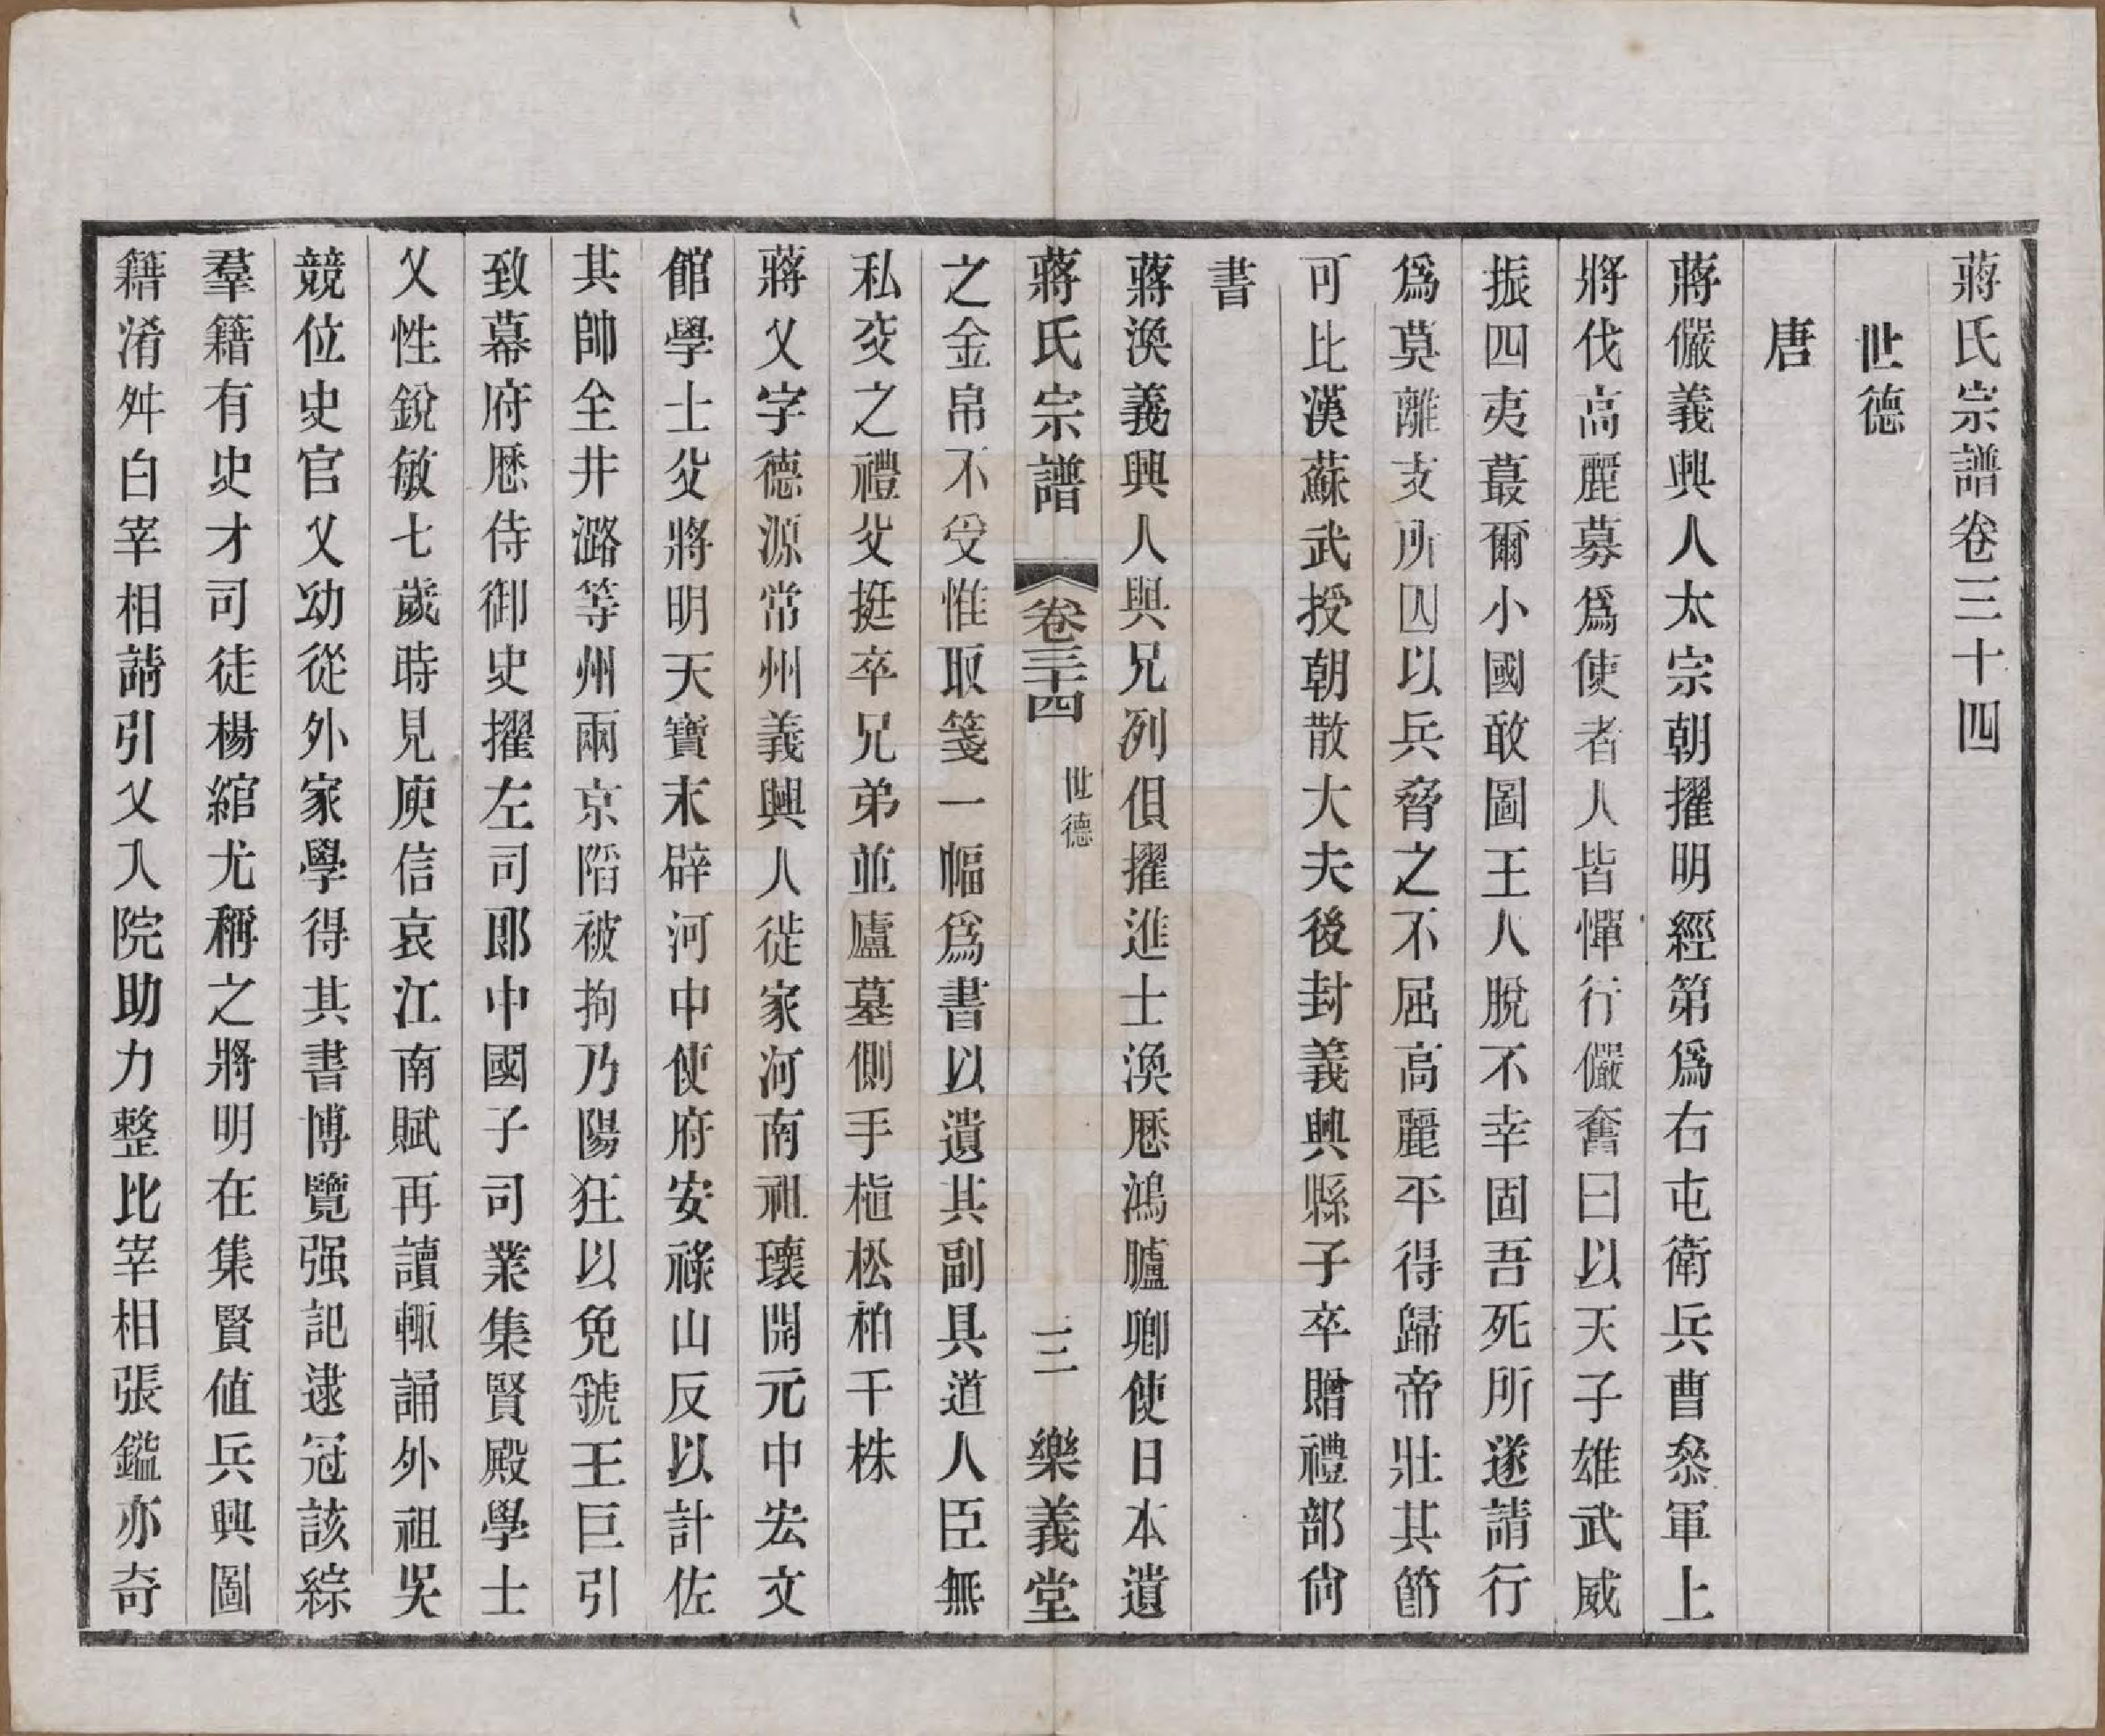 蔣氏宗譜卷三十四
世德
唐
蔣儼義興人太宗朝擢明經第爲右屯衛兵曹叅軍上
將伐高麗募爲使者人皆憚行儼奮曰以天子雄武威
振四夷蕞爾小國敢圖王人脫不幸固吾死所遂請行
爲莫離支所囚以兵脅之不屈高麗平得歸帝壯其節
可比漢蘇武授朝散大夫後封義興縣子卒贈禮部尙
書
蔣渙義興人與兄列俱擢進士渙歷鴻臚卿使日本遺
蔣氏宗譜 卷三十四 世德 三 樂義堂
之金帛不受惟取箋一幅爲書以遺其副具道人臣無
私交之禮父挺卒兄弟並廬墓側手植松柏千株
蔣乂字德源常州義興人徙家河南祖瓌開元中宏文
館學士父將明天寶末辟河中使府安祿山反以計佐
其帥全井潞等州兩京陷被拘乃陽狂以免虢王巨引
致幕府歷侍御史擢左司郎中國子司業集賢殿學士
乂性銳敏七歲時見庾信哀江南賦再讀輒誦外祖吳
競位史官乂幼從外家學得其書博覽强記逮冠該綜
羣籍有史才司徒楊綰尤稱之將明在集賢值兵興圖
籍淆舛白宰相請引乂入院助力整比宰相張鎰亦奇